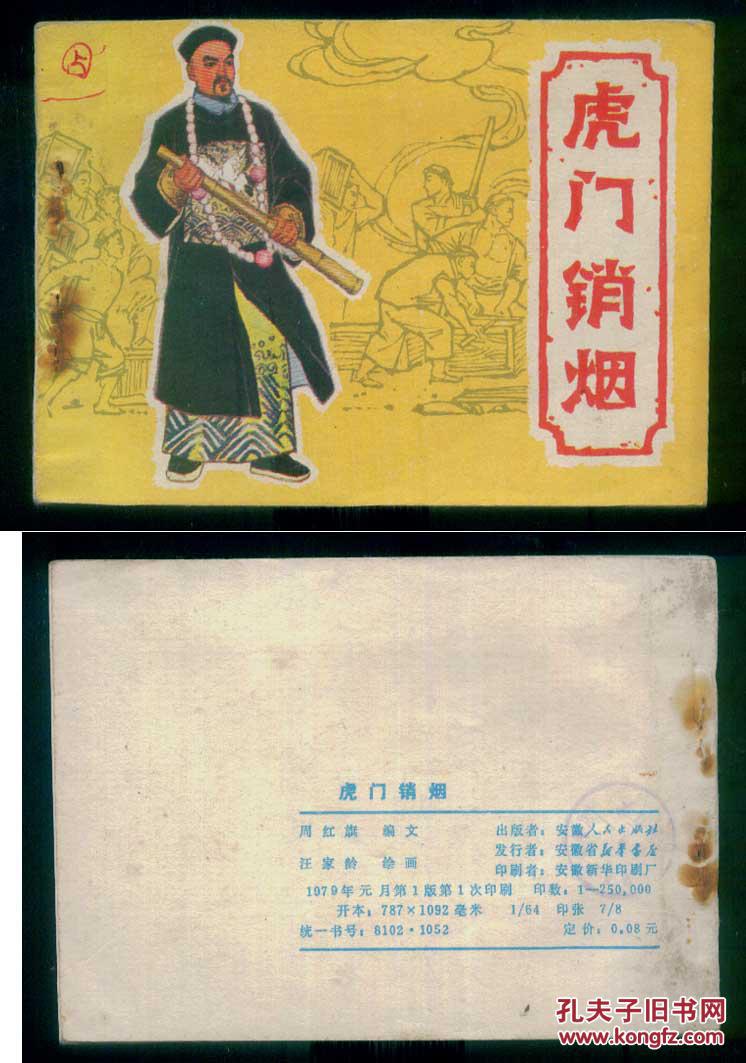 占
虎门销烟
虎门销烟
周红旗 编文 出版者：安徽人民出版社
发行者：安徽省新华书店
汪家龄 绘画 印刷者：安徽新华印刷厂
1979年元月第1版第1次印刷 印数：1—250,000
开本：787×1092毫米 1/64 印张 7/8
统一书号：8102·1052 定价：0.08元
孔夫子旧书网
www.kongfz.com